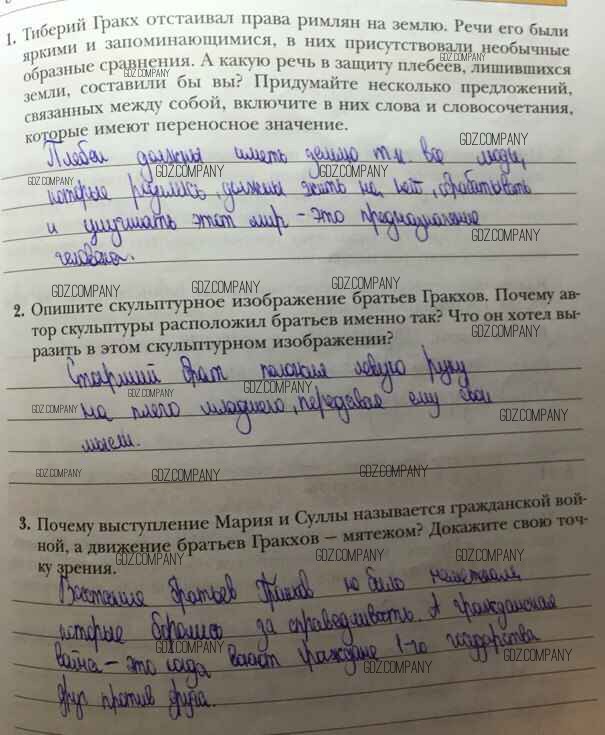 1. Тиберий Гракх отстаивал права римлян на землю. Речи его были
яркими и запоминающимися, в них присутствовали необычные
образные сравнения. А какую речь в защиту плебеев, лишившихся
GDZ.COMPANY
земли, составили бы вы? Придумайте несколько предложений,
GDZ.COMPANY GDZ.COMPANY
связанных между собой, включите в них слова и словосочетания,
которые имеют переносное значение.
GDZ.COMPANY
Плебеи должны иметь землю т.к. все люди,
GDZ.COMPANY GDZ.COMPANY
которые родились, должны жить на ней, обрабатывать
GDZ.COMPANY GDZ.COMPANY
и улучшать этот мир – это предназначение
GDZ.COMPANY
человека.
GDZ.COMPANY GDZ.COMPANY GDZ.COMPANY
2. Опишите скульптурное изображение братьев Гракхов. Почему ав-
тор скульптуры расположил братьев именно так? Что он хотел вы-
GDZ.COMPANY
разить в этом скульптурном изображении?
GDZ.COMPANY GDZ.COMPANY
Старший брат положил левую руку
GDZ.COMPANY GDZ.COMPANY
на плечо младшего, передавая ему свои
GDZ.COMPANY GDZ.COMPANY
мысли.
GDZ.COMPANY GDZ.COMPANY GDZ.COMPANY
GDZ.COMPANY
3. Почему выступление Мария и Суллы называется гражданской вой-
ной, а движение братьев Гракхов – мятежом? Докажите свою точ-
GDZ.COMPANY GDZ.COMPANY GDZ.COMPANY
ку зрения.
Восстание братьев Гракхов было
которые боролись за справедливость. А гражданская
GDZ.COMPANY GDZ.COMPANY
война – это когда граждане 1-го
GDZ.COMPANY GDZ.COMPANY GDZ.COMPANY
друг против друга.